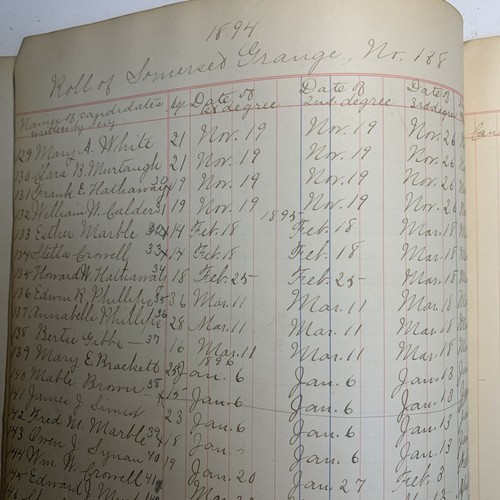 1894
Roll of Somerset Grange, No. 188
Names of candidates Age Date of Date of Date of
matters by Levy 1st degree 2nd degree 3rd degree
129 Mary A. White 21 Nov. 19 Nov. 19 Nov. 26
130 Lara B. Murtaugh 21 Nov. 19 Nov. 19 Nov. 26
131 Frank E. Hathaway 30 19 Nov. 19 Nov. 19 Nov. 26
132 William W. Calder 31 19 Nov. 19 Nov. 19 Nov. 26
1895
133 Esther Marble 32 x 14 Feb. 18 Feb. 18 Mar. 18
134 Stella Crowell 33 x 14 Feb. 18 Feb. 18 Mar. 18
135 Howard W. Hathaway 34 18 Feb. 25 Feb. 25 Mar. 18
136 Edwin R. Phillips 35 36 Mar. 11 Mar. 11 Mar. 18
137 Annabelle Phillips 36 28 Mar. 11 Mar. 11 Mar. 18
138 Bertie Gibbs 37 16 Mar. 11 Mar. 11 Mar. 18
1896
139 Mary E. Brackett 25 Jan. 6 Jan. 6 Jan. 13
140 Mable Brown 38 x 15 Jan. 6 Jan. 6 Jan. 13
141 James J. 23 Jan. 6 Jan. 6 Jan. 13
142 Fred M. Marble 39 x 18 Jan. Jan. 6 Jan. 13
143 Owen J. Synan 40 19 Jan. 20 Jan. 27 Feb. 3
144 Wm. W. Crowell 41
145 Edward J.